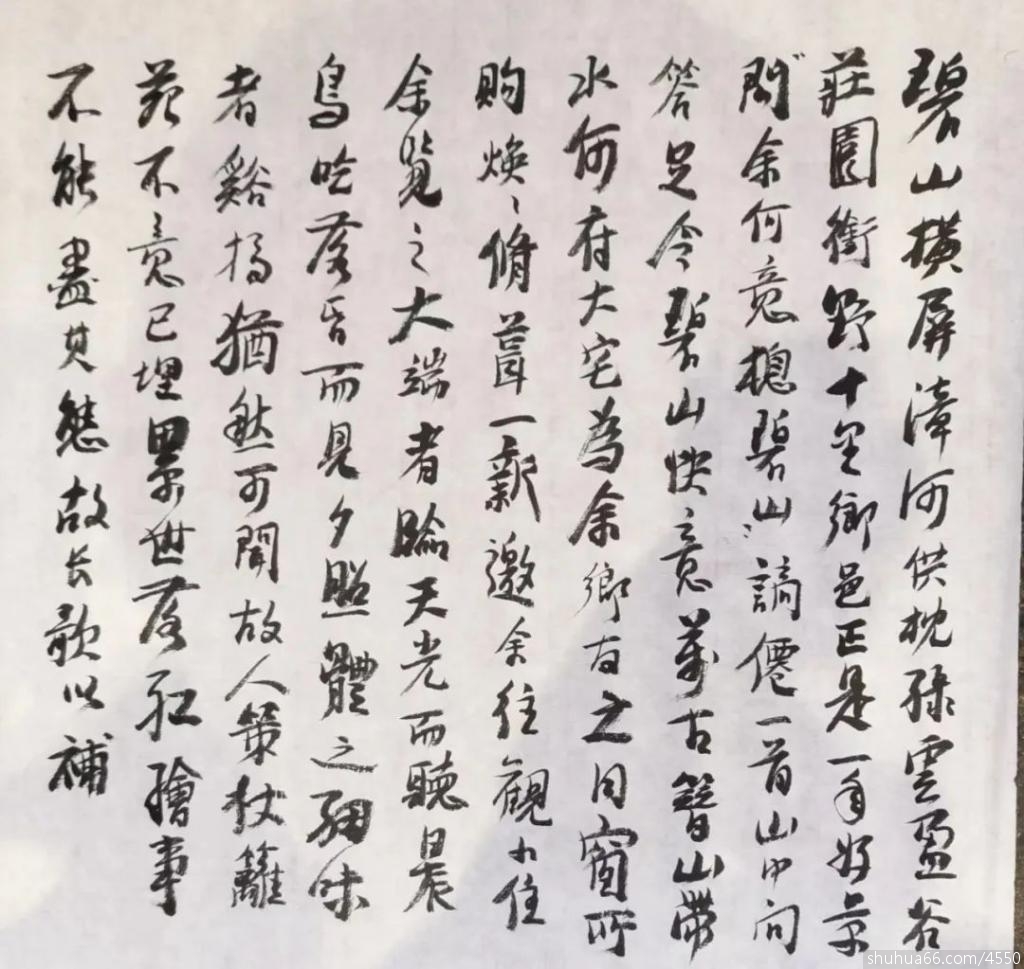 碧山橫屏漳河供枕綠雲盈谷
莊園銜野十里鄉邑正是一年好景
問余何意棲碧山謫僊一首山中問
答足令碧山快意萬古簪山帶
水何府大宅為余鄉右之同窗所
購煥〻脩葺一新邀余往觀小住
余覽之大端者瞻天光而聽晨
鳥吟落昏而見夕照體之細味
者谿橋猶然可聞故人策杖籬
苑不意已埋累世落紅繪事
不能盡其態故長歌以補
shuhua66.com/4550